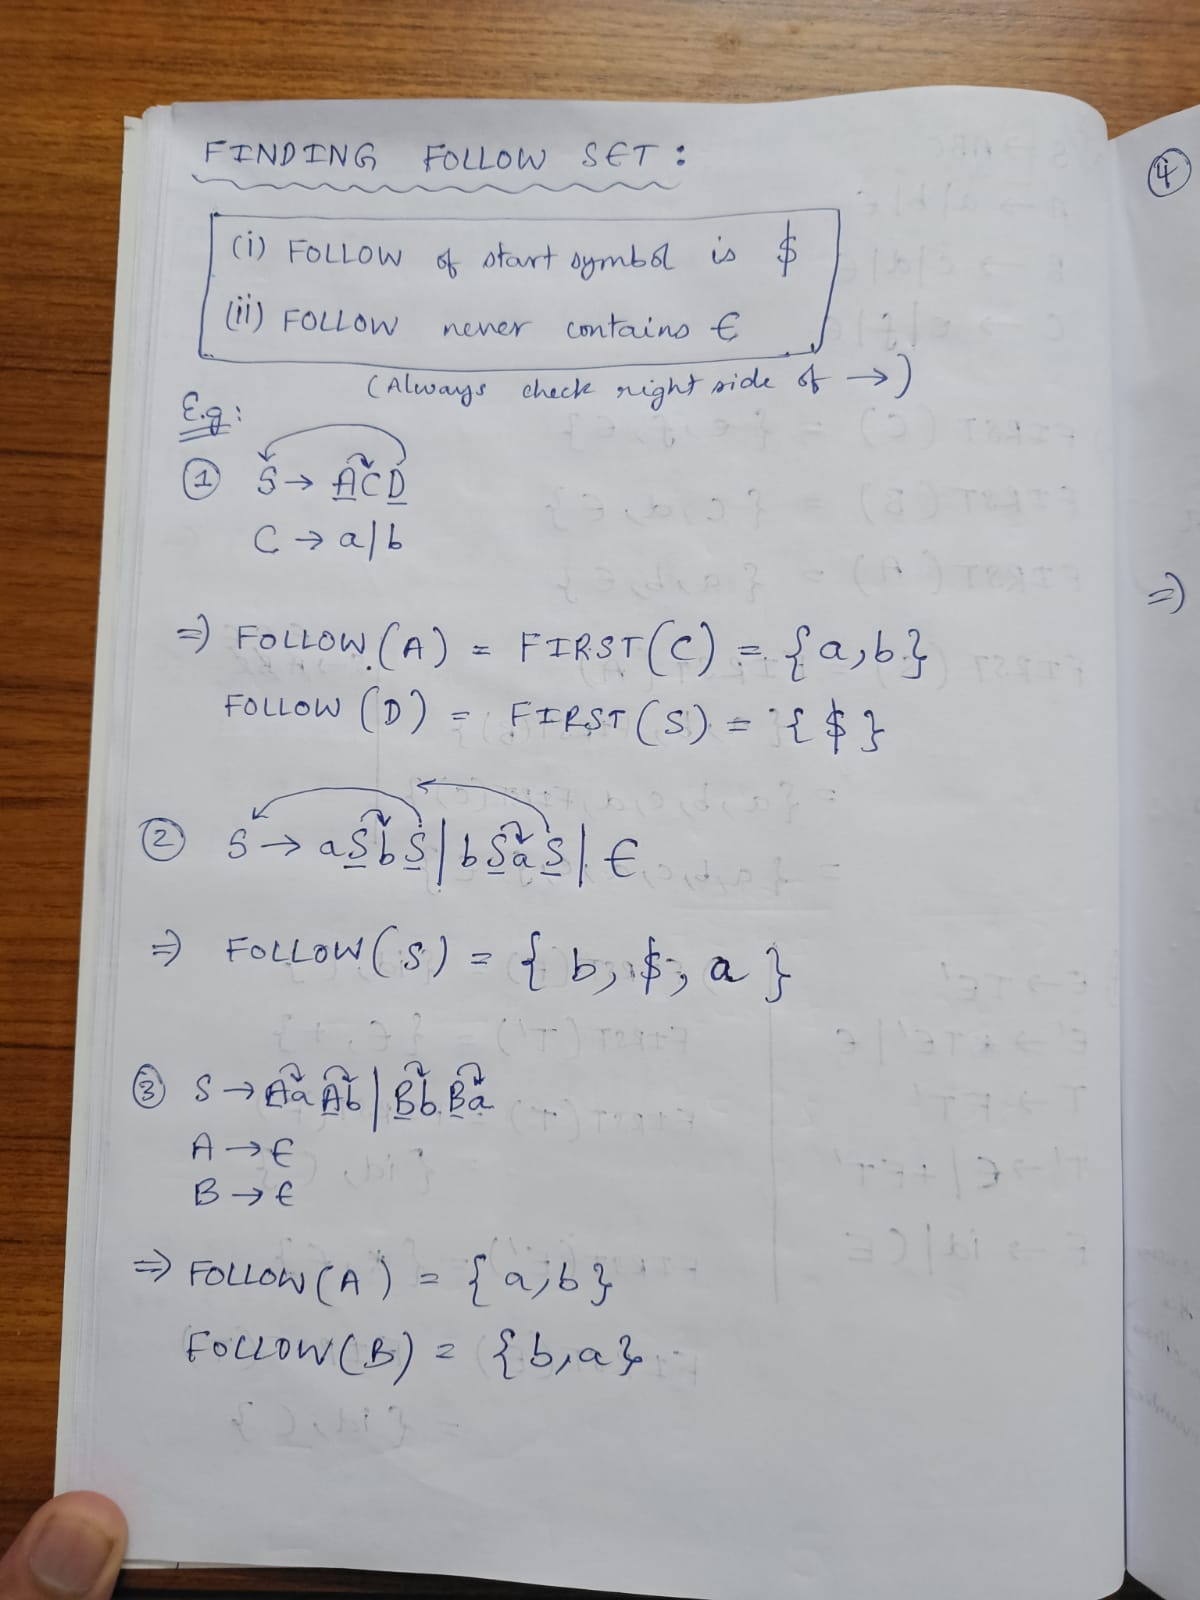 FINDING FOLLOW SET :
(i) FOLLOW of start symbol is $
(ii) FOLLOW never contains ϵ
(Always check right side of →)
E.g:
① S → ACD
C → a|b
⇒ FOLLOW(A) = FIRST(C) = {a,b}
FOLLOW (D) = FIRST(S) = {$}
② S → aSbS | bSaS | ϵ
⇒ FOLLOW(S) = { b, $, a }
③ S → AaAb | BbBa
A → ϵ
B → ϵ
⇒ FOLLOW(A) = {a,b}
FOLLOW(B) = {b,a}
④
⇒